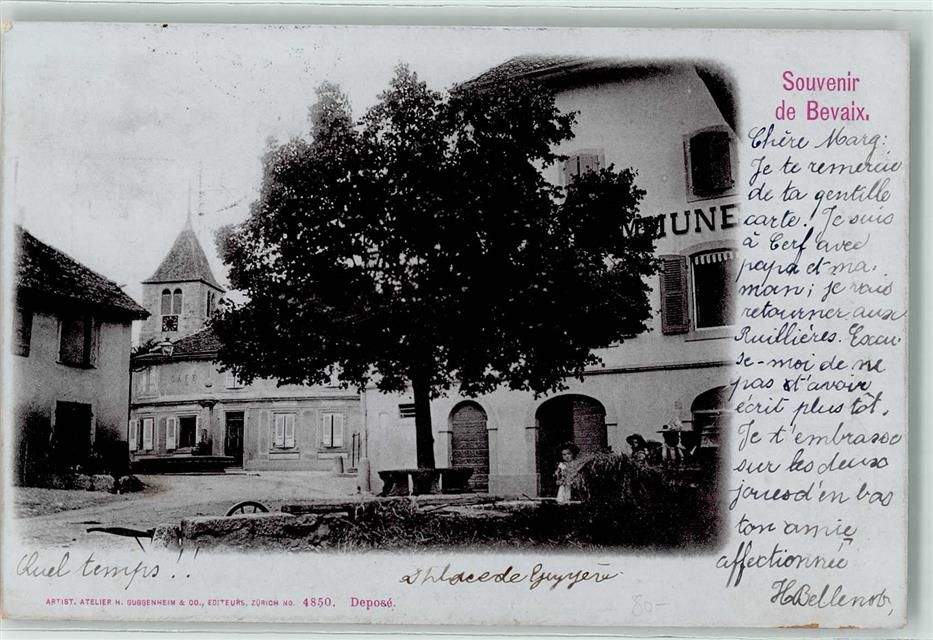 Souvenir
de Bevaix.
Chère Marg:
Je te remercie
de ta gentille
carte. Je suis
à Cerf avec
papa et ma-
man; je vais
retourner aux
Ruillières. Excu
se-moi de ne
pas t'avoir
écrit plus tôt.
Je t'embrasse
sur les deux
joues d'en bas
ton amie
affectionnée
MMUNE
CAFÉ
Quel temps!!
Place de
ARTIST. ATELIER H. GUGGENHEIM & CO., EDITEURS, ZÜRICH NO. 4850. Deposé.
80-